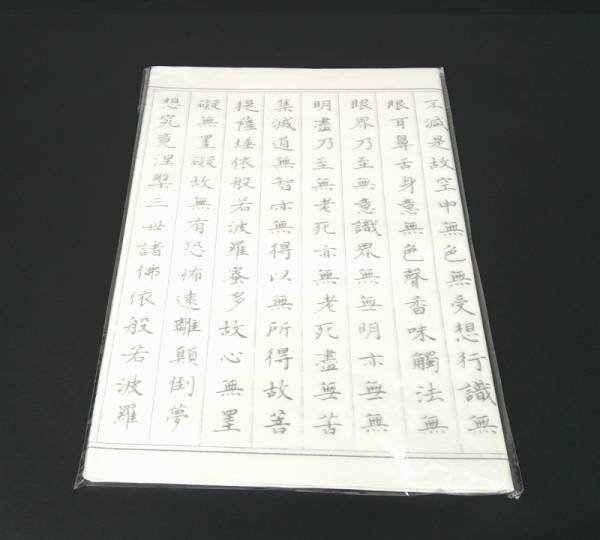 不減是故空中無色無受想行識無
眼耳鼻舌身意無色聲香味觸法無
眼界乃至無意識界無無明亦無無
明盡乃至無老死亦無老死盡無苦
集滅道無智亦無得以無所得故菩
提薩埵依般若波羅蜜多故心無罣
礙無罣礙故無有恐怖遠離顛倒夢
想究竟涅槃三世諸佛依般若波羅